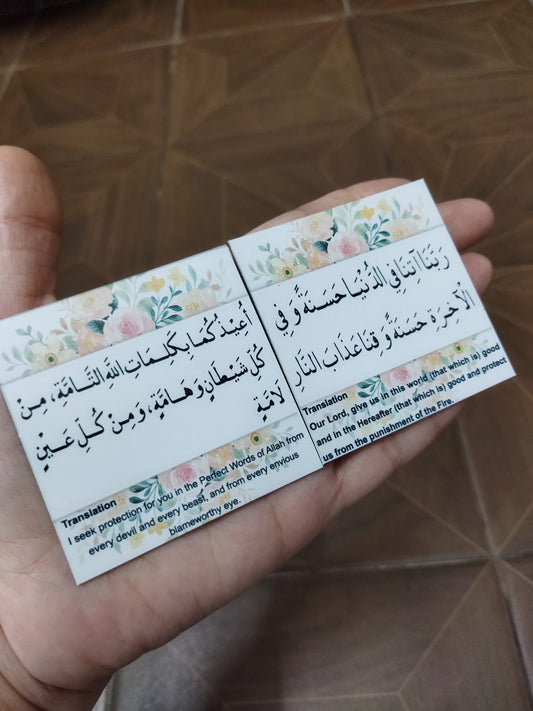 أُعِيْذُكُمَا بِكَلِمَاتِ اللَّهِ التَّامَّةِ، مِنْ
كُلِّ شَيْطَانٍ وَهَامَّةٍ، وَمِنْ كُلِّ عَيْنٍ
لَامَّةٍ
Translation
I seek protection for you in the Perfect Words of Allah from
every devil and every beast, and from every envious
blameworthy eye.
رَبَّنَا آتِنَا فِي الدُّنْيَا حَسَنَةً وَفِي
الْآخِرَةِ حَسَنَةً وَقِنَا عَذَابَ النَّارِ
Translation
Our Lord, give us in this world (that which is) good
and in the Hereafter (that which is) good and protect
us from the punishment of the Fire.